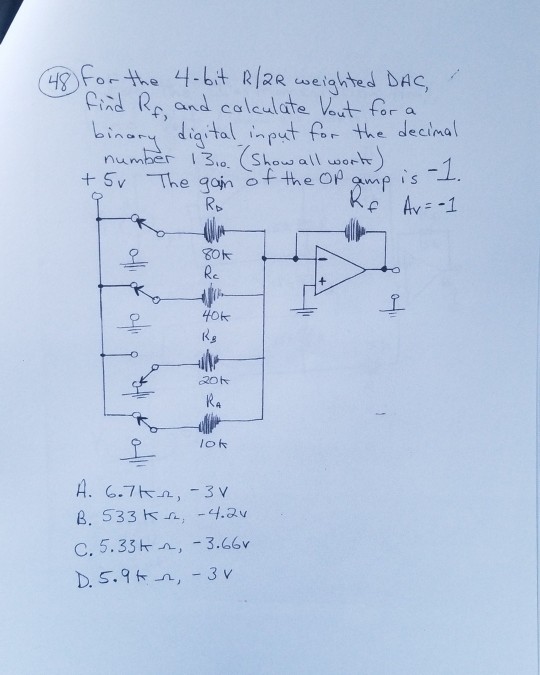 48 For the 4-bit R/2R weighted DAC,
find Rf, and calculate Vout for a
binary digital input for the decimal
number 13₁₀. (Show all work)
+5v The gain of the OP amp is -1.
RD
Rf Av = -1
80K
Rc
40K
RB
20K
RA
10K
-
+
A. 6.7K Ω, -3V
B. 533 K Ω, -4.2v
C. 5.33K Ω, -3.66v
D. 5.9K Ω, -3V